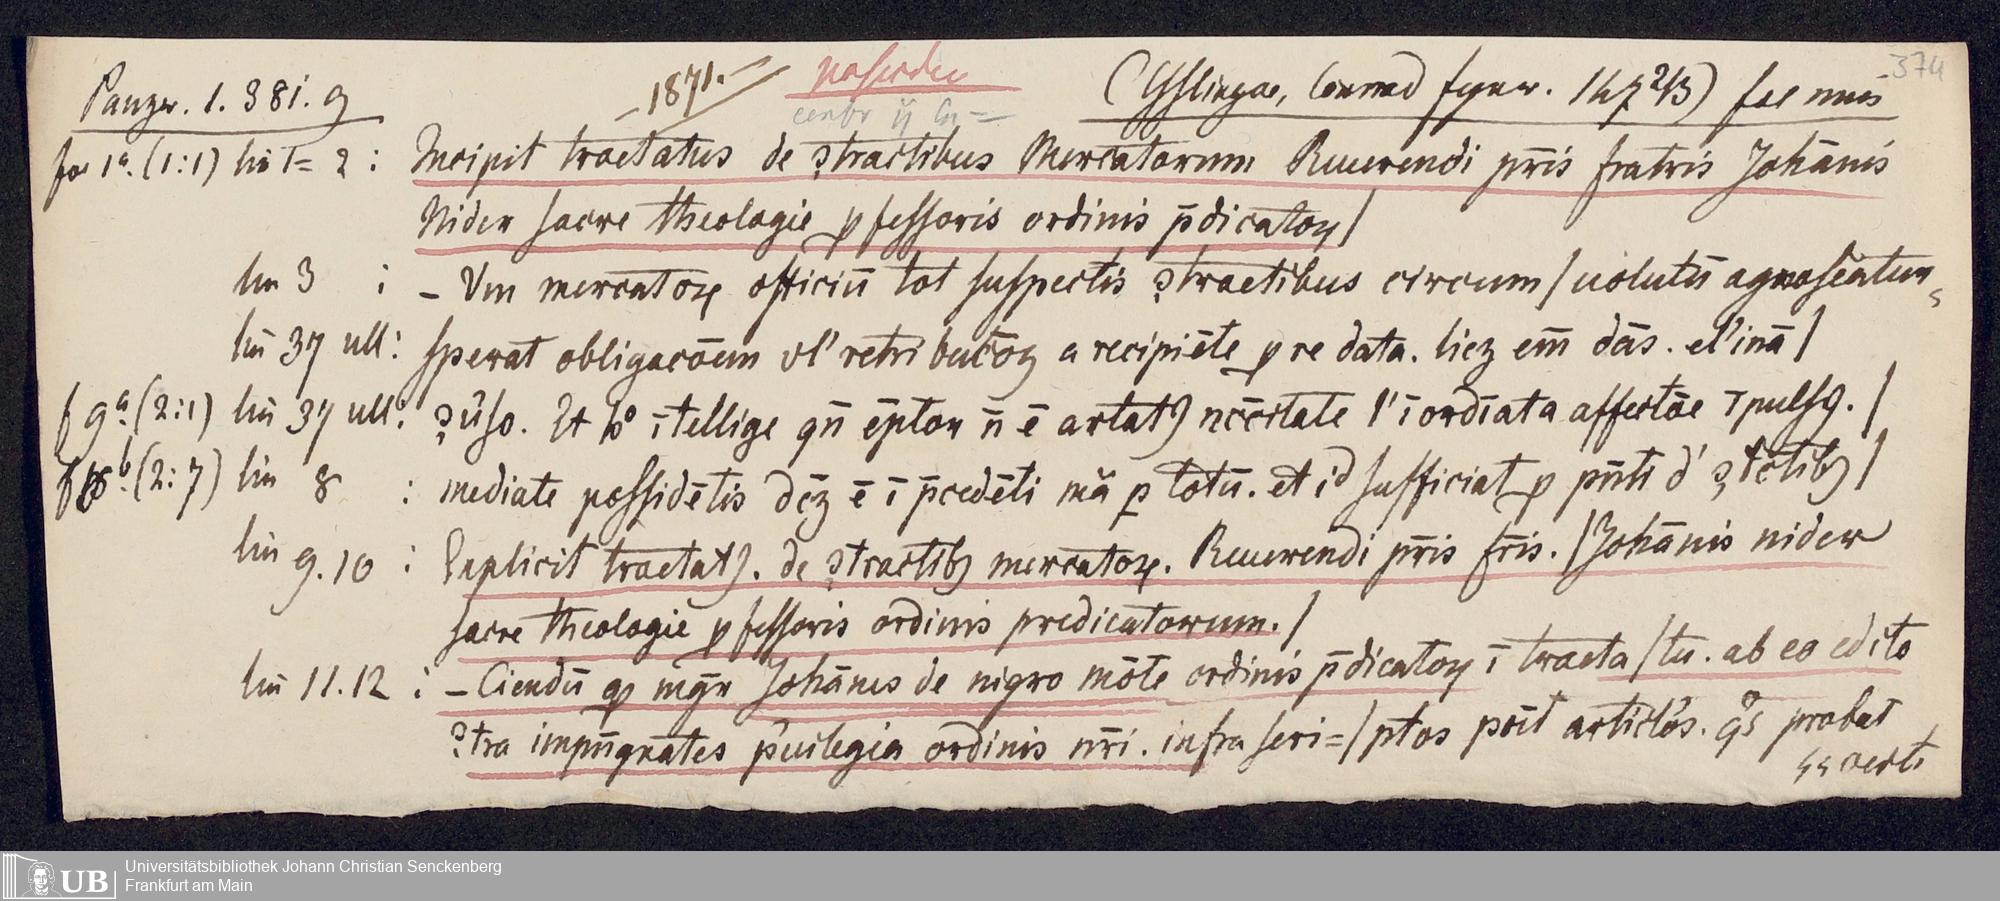 Panzer. 1. 381. 9 -1871.- (Esslingae, Conrad fyner. 1472/3) 374
fol 1ª. (1:1) lin 1=2 : Incipit tractatus de ꝯtractibus Mercatorum Reuerendi pr̄is fratris Johānis
Nider sacre theologie ꝓfessoris ordinis p̄dicatoꝝ /
lin 3 : – Vm mercatoꝝ officiū tot suspectis ꝯtractibus circum / uolutū agnoscātur
lin 37 ult : sperat obligacōem vl' retribucōꝫ a recipiēte ꝓ re data. licꝫ em̄ dās. el'inā /
f 9ª. (2:1) lin 37 ult : ꝯūso. Et hº ītellige qn̄ ēptor n̄ ē artatꝰ nēc̄itate l' īordīata affectōe īpulsꝰ. /
(2:7) lin 8 : mediate possidētis dēꝫ ē ī p̄cedēti mā ꝑ totū. et id sufficiat ꝓ pn̄ti d' ꝯtctibꝰ /
lin 9. 10 : Explicit tractatꝰ. de ꝯtractibꝰ mercatoꝝ. Reuerendi pr̄is fr̄is. / Johānis nider
sacre theologie ꝓfessoris ordinis predicatorum. /
lin 11. 12 : – Ciendū ꝙ mgr̄ Johānes de nigro mōte ordinis p̄dicatoꝝ ī tracta / tu. ab eo edito
ꝯtra impūgnātes p̄uilegia ordinis nr̄i. infra scri= / ptos poīt articlos. qºs probat